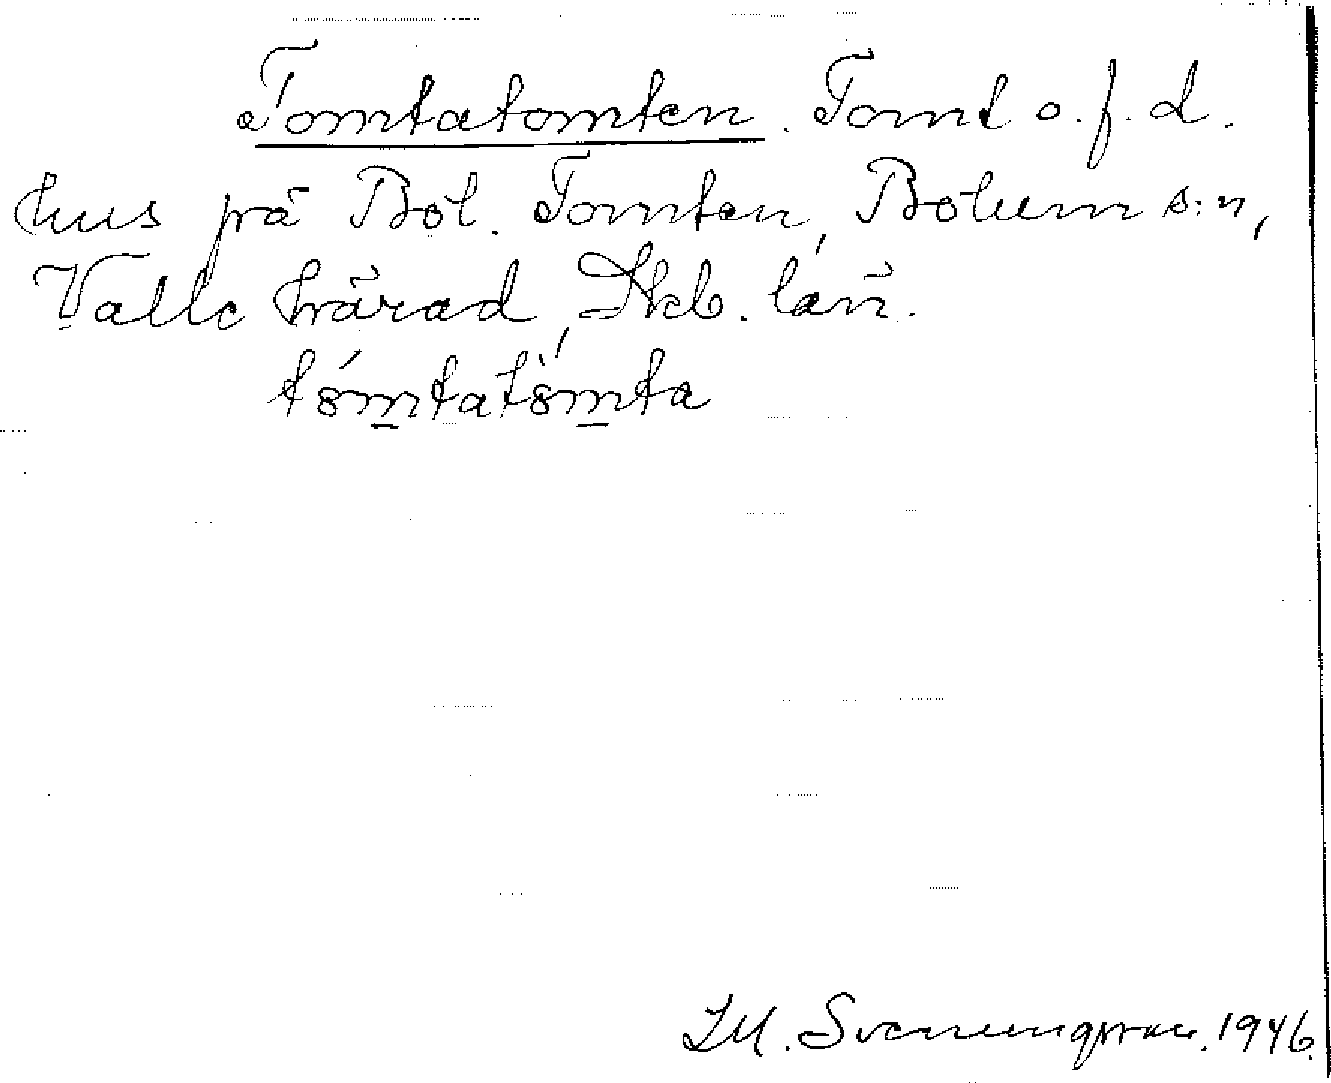 Tomtatomten. Tomt o. f. d.
hus på Böl. Tomten, Bolum s:n,
Valle härad, Skb. län.
tómtatòmta
M. Svenungsson. 1946.